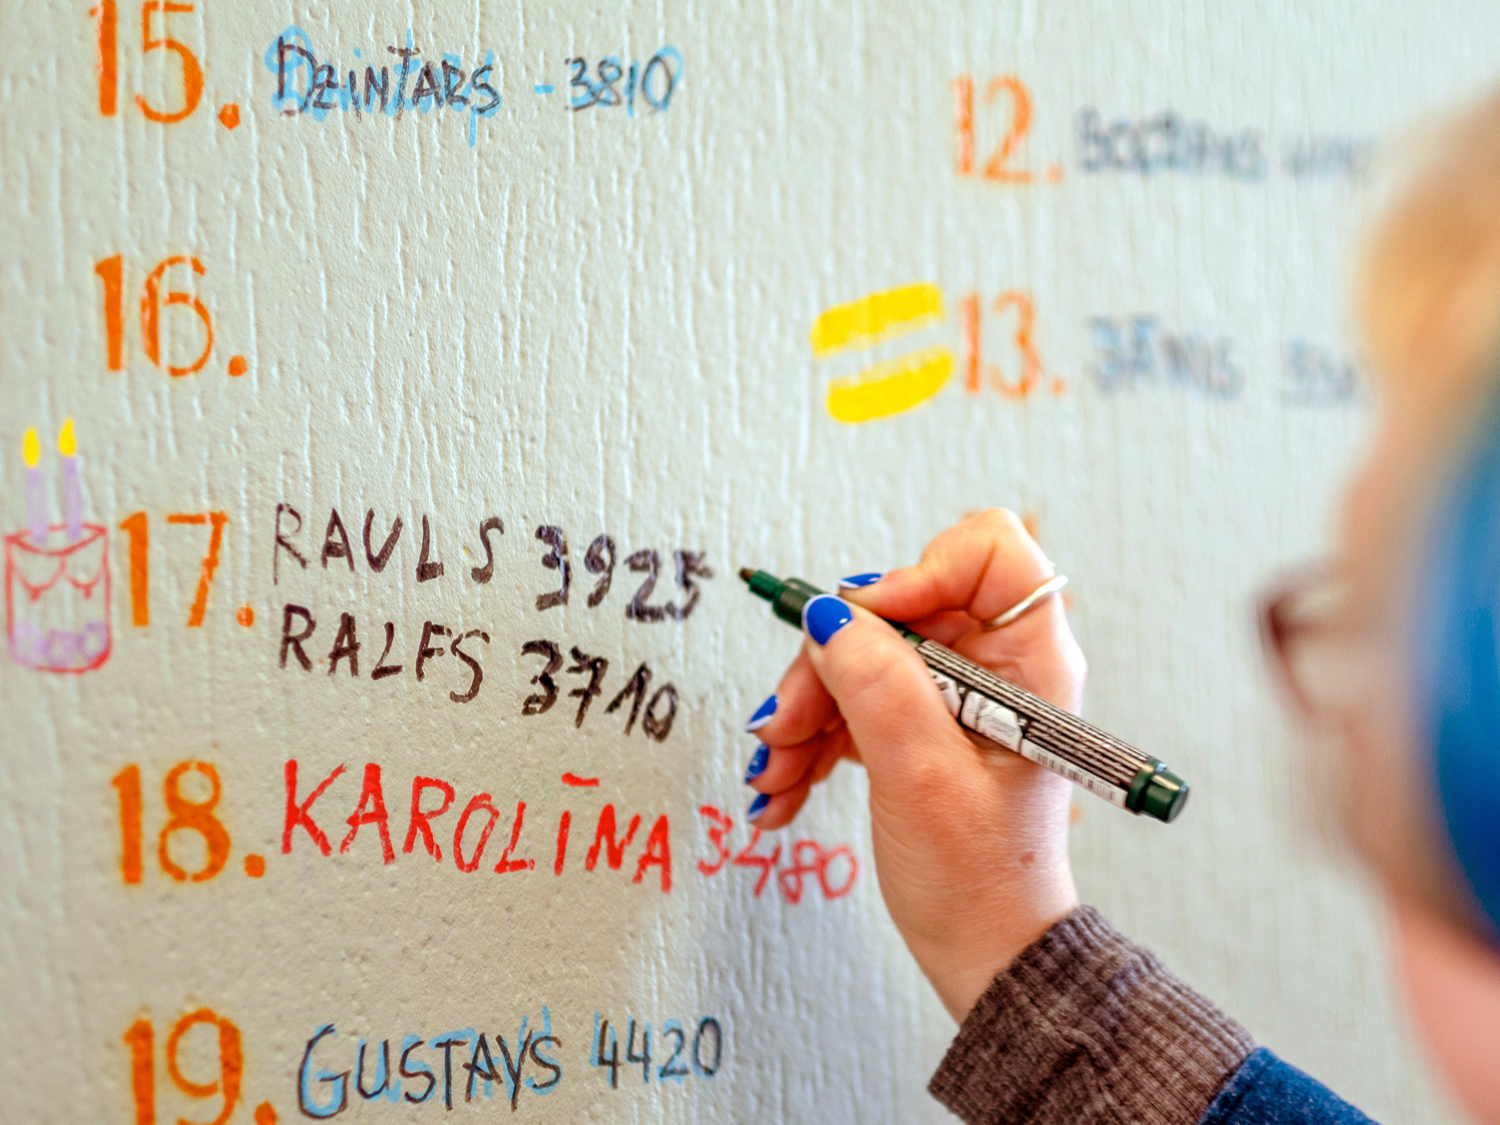 15. DZINTARS - 3810
16.
17. RAULS 3925
RALFS 3710
18. KAROLĪNA 3480
19. GUSTAVS 4420
12.
13. JĀNIS